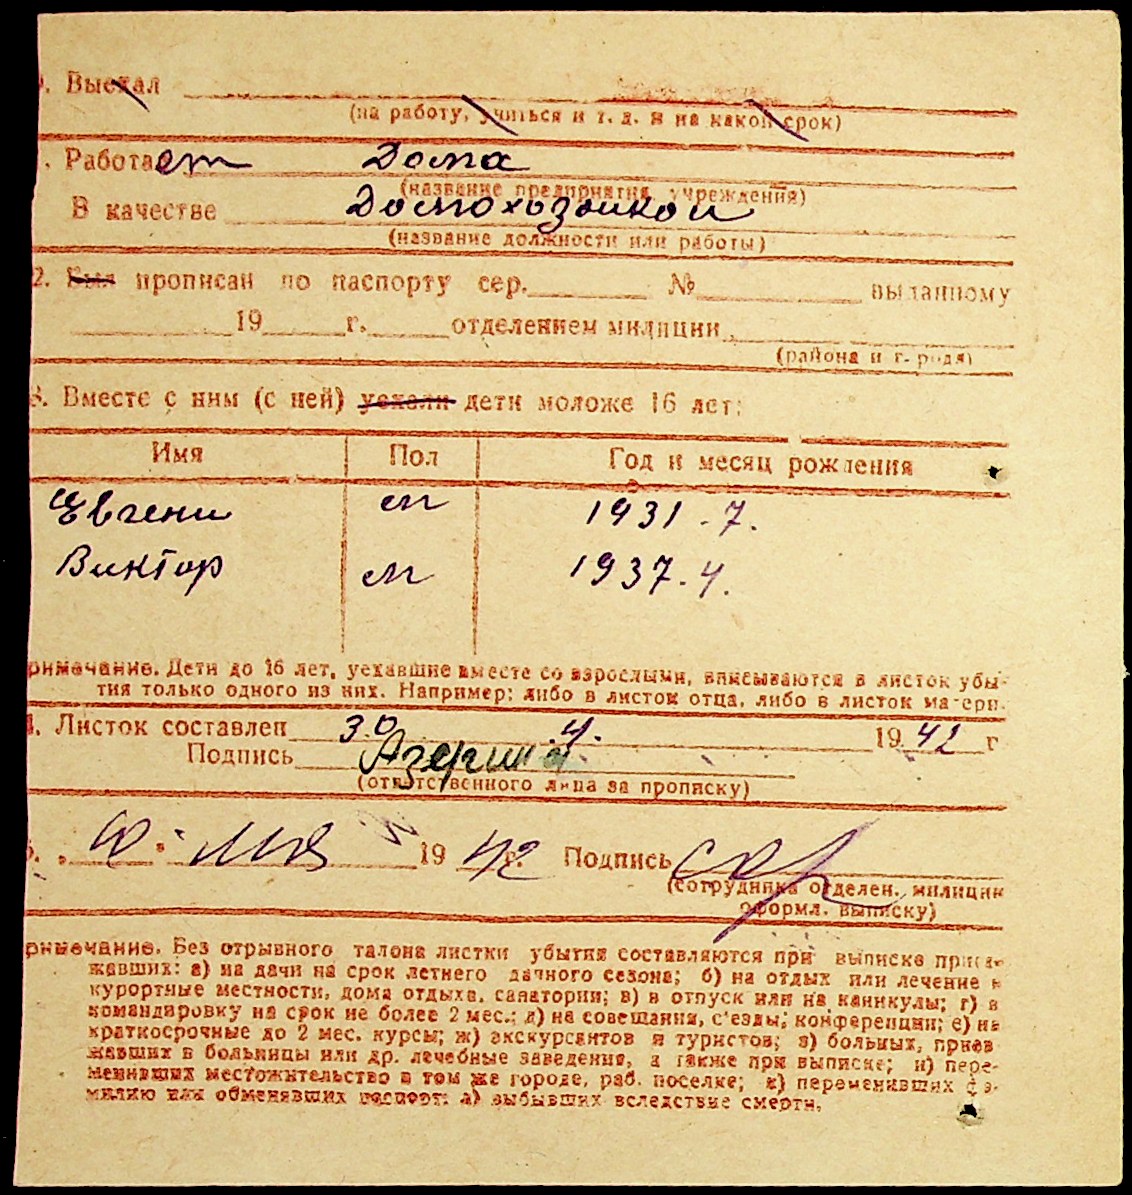 . Выехал
(на работу, учиться и т. д. и на какой срок)
. Работает Дома
(название предприятия, учреждения)
В качестве Домохозяйкой
(название должности или работы)
2. Был прописан по паспорту сер. № выданному
19 г. отделением милиции
(района и города)
3. Вместе с ним (с ней) уехали дети моложе 16 лет:
Имя Пол Год и месяц рождения
Евгени м 1931.7.
Виктор м 1937.4.
римечание. Дети до 16 лет, уехавшие вместе со взрослыми, вписываются в листок убы-
тия только одного из них. Например: либо в листок отца, либо в листок матери.
4. Листок составлен 30 .4. 1942 г
Подпись
(ответственного лица за прописку)
. „ 10 " мая 1942 г. Подпись
(сотрудника отделен. милиции
оформл. выписку)
римечание. Без отрывного талона листки убытия составляются при выписке приез-
жавших: а) на дачи на срок летнего дачного сезона; б) на отдых или лечение в
курортные местности, дома отдыха, санатории; в) в отпуск или на каникулы; г) в
командировку на срок не более 2 мес.; д) на совещания, с'езды, конференции; е) на
краткосрочные до 2 мес. курсы; ж) экскурсантов и туристов; з) больных, приез
жавших в больницы или др. лечебные заведения, а также при выписке; и) пере-
менивших местожительство в том же городе, раб. поселке; к) переменивших фа-
милию или обменявших паспорт; л) выбывших вследствие смерти.